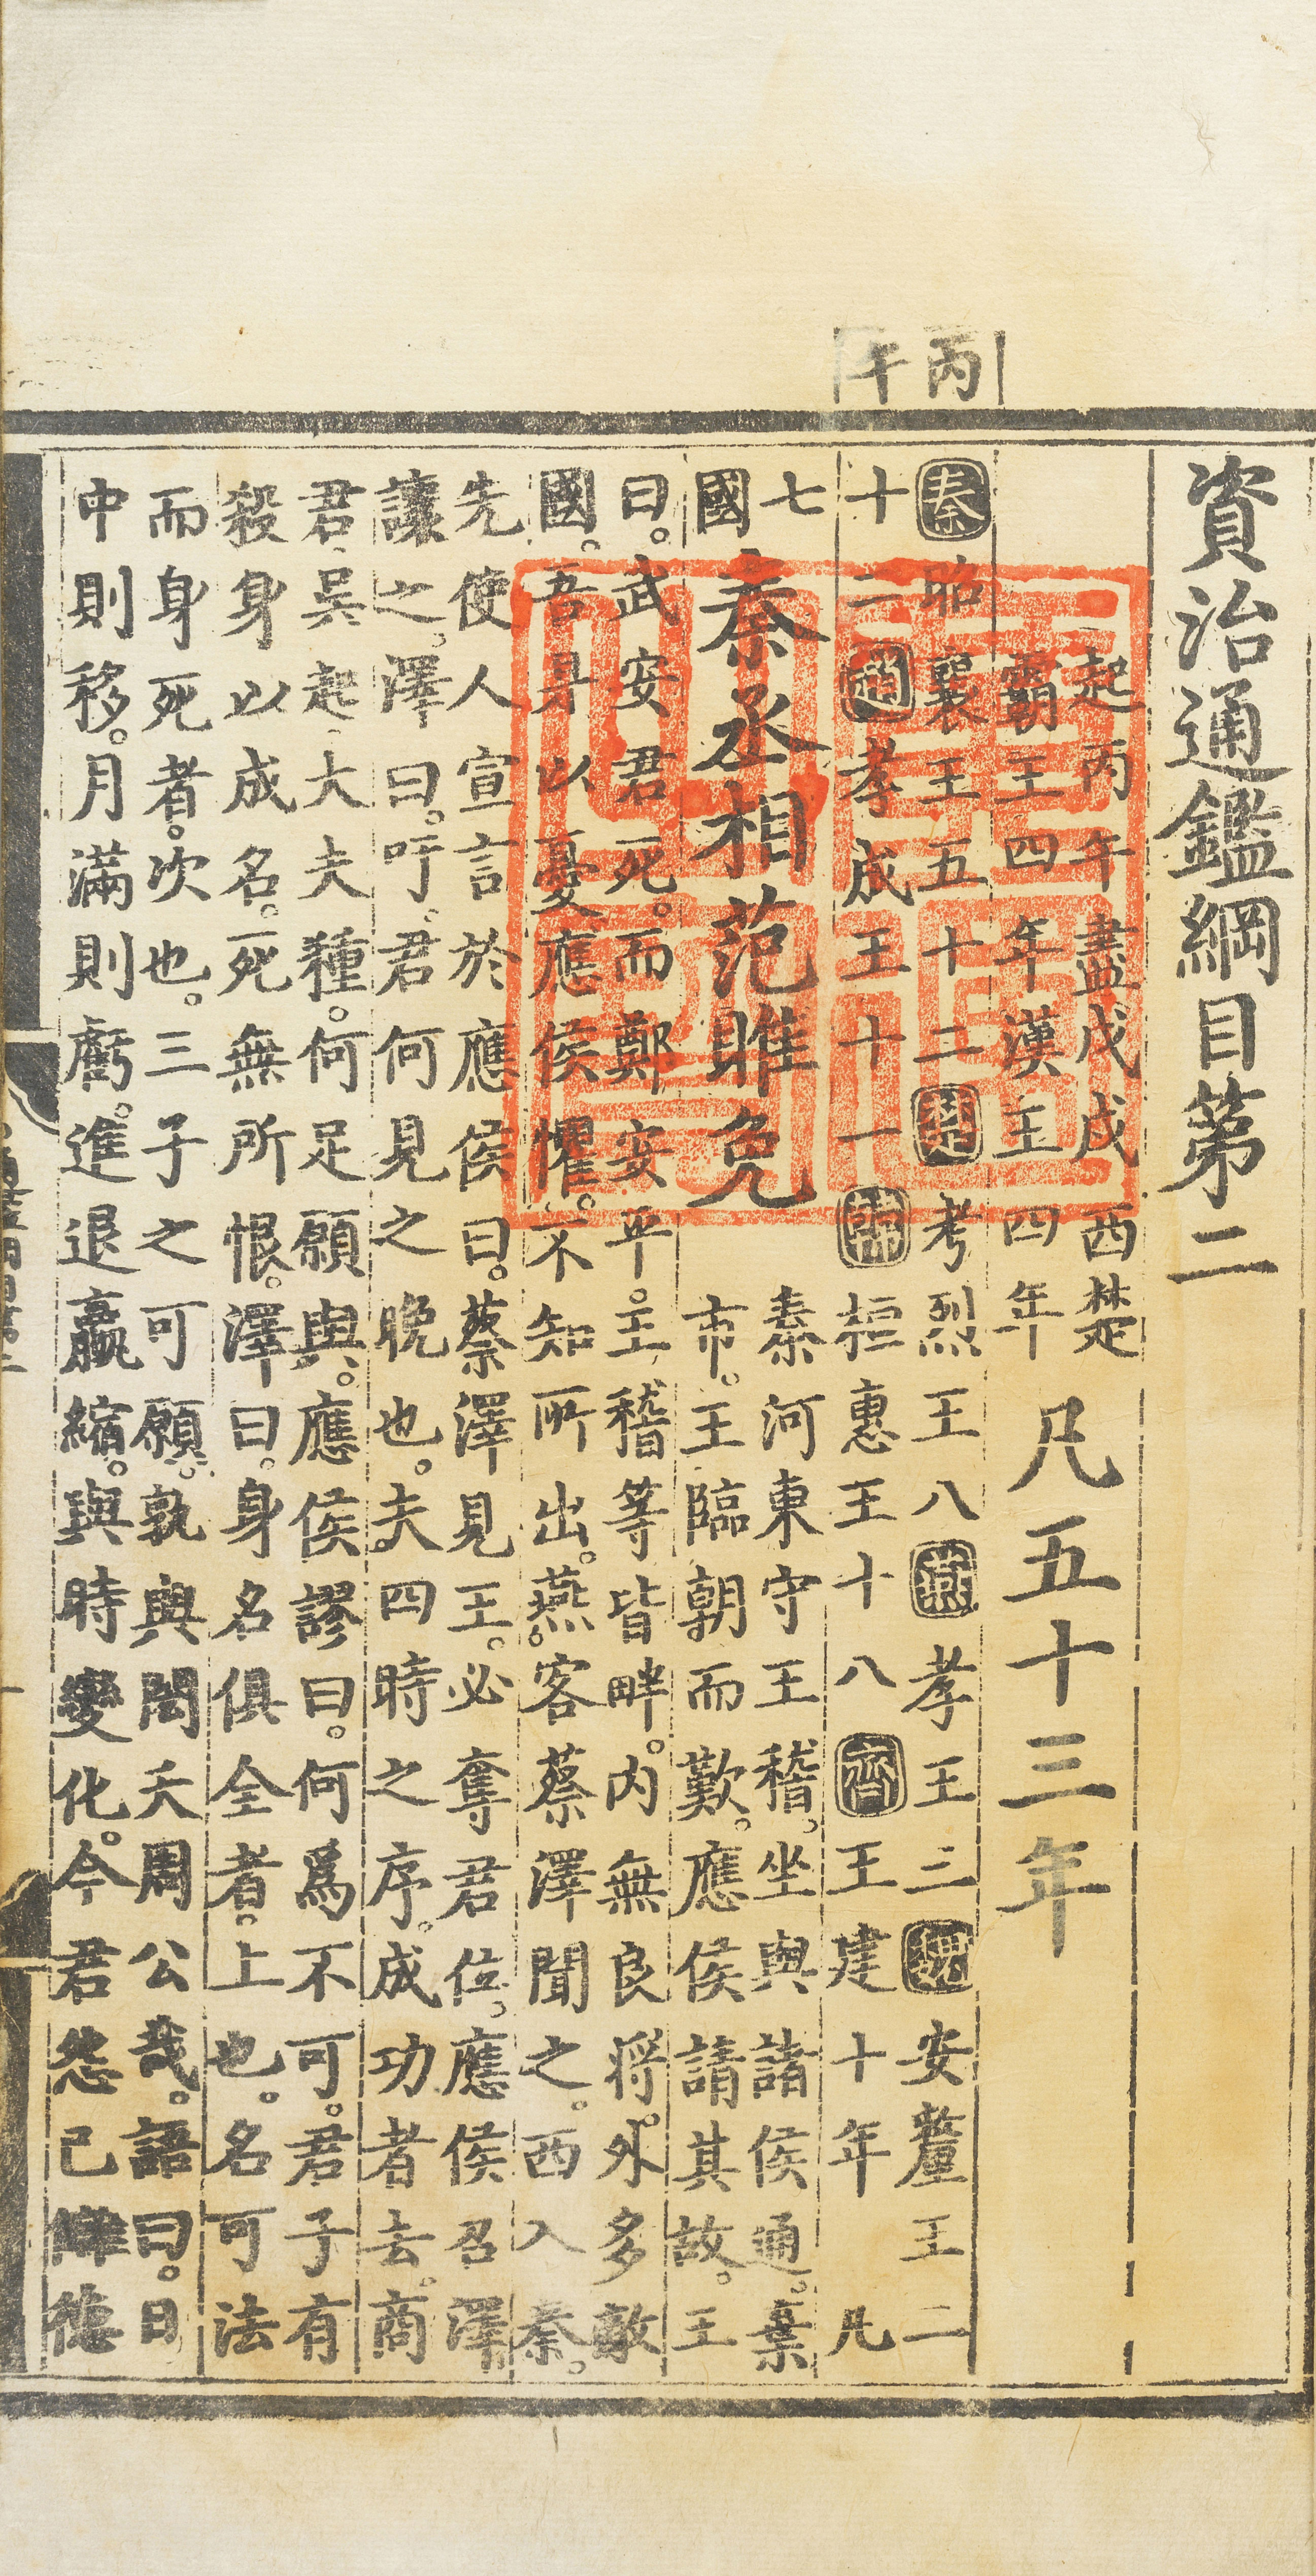 資治通鑑綱目第二
起丙午盡戊戌西楚
霸王四年漢王四年
凡五十三年
丙午
秦昭襄王五十二楚考烈王八燕孝王三魏安釐王二
十二趙孝成王十一韓桓惠王十八齊王建十年凡
七國
秦丞相范雎免
秦河東守王稽。坐與諸侯通。棄
市。王臨朝而歎。應侯請其故。王
曰。武安君死。而鄭安平。王稽等皆畔。内無良將。外多敵
國。吾是以憂應侯懼。不知所出。燕客蔡澤聞之。西入秦。
先使人宣言於應侯曰。蔡澤見王。必奪君位。應侯召澤
讓之。澤曰。吁。君何見之晚也。夫四時之序。成功者去。商
君、吳起、大夫種。何足願與。應侯謬曰。何爲不可。君子有
殺身以成名。死無所恨。澤曰。身名俱全者。上也。名可法
而身死者。次也。三子之可願。孰與閎夭周公哉。語曰。日
中則移。月滿則虧。進退嬴縮。與時變化。今君怨已讎德